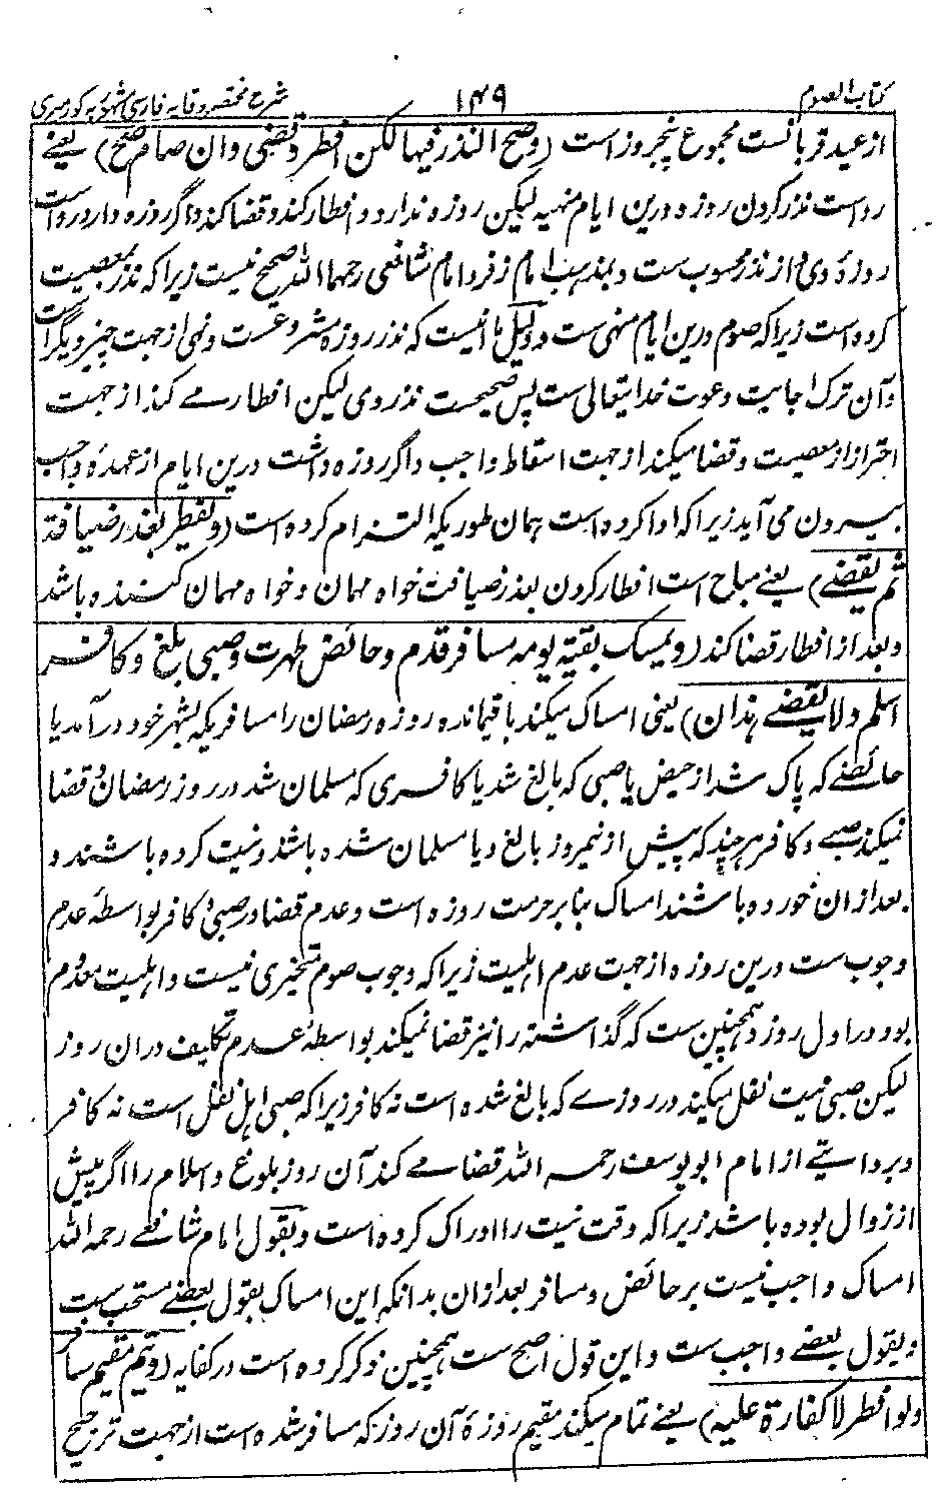 کتاب الصوم ۱۴۹ شرح مختصر وقایه فارسی مشهور به کورمیری
از عید قربانست مجموع پنجروز است (وصح النذر فیها لکن افطر وقضی وان صام صح) یعنے
رواست نذر کردن روزه درین ایام منهیه لیکن روزه ندارد و افطار کند و قضا کند و اگر روزه دارد رواست
روزهٔ وی و از نذر محسوب ست و بمذهب امام زفر و امام شافعی رحمها الله صحیح نیست زیرا که نذر بمعصیت
کرده است زیرا که صوم درین ایام منهی ست و دلیل ما انیست که نذر روزه مشروعست و نهی از جهت چیز دیگر است
و آن ترک اجابت دعوت خدایتعالی ست پس صحیحست نذر وی لیکن افطار مے کند از جهت
احتراز از معصیت و قضا میکند از جهت اسقاط واجب و اگر روزه داشت درین ایام از عهدهٔ واجب
بیرون می آید زیرا که ادا کرده است بهمان طوریکه التزام کرده است (ویفطر بعذر ضیافة
ثم یقضے) یعنے مباح است افطار کردن بعذر ضیافت خواه مهمان و خواه مهمان کننده باشد
و بعد از افطار قضا کند (ویمسک بقیة یومه مسافر قدم وحائض طهرت وصبی بلغ وکافر
اسلم ولا یقضے هذان) یعنی امساک میکند باقیمانده روزه رمضان را مسافریکه بشهر خود در آمد یا
حائضے که پاک شد از حیض یا صبی که بالغ شد یا کافری که مسلمان شد در روز رمضان و قضا
نمیکند صبے و کافر هر چند که پیش از نیمروز بالغ و یا مسلمان شده باشد و نیت کرده باشند و
بعد ازان خورده باشند امساک بنا بر حرمت روزه است و عدم قضا در صبی و کافر بواسطهٔ عدم
وجوب ست درین روزه از جهت عدم اهلیت زیرا که وجوب صوم متجزی نیست و اهلیت معدوم
بود در اول روز و همچنین ست که گذاشته را نیز قضا نمیکند بواسطهٔ عدم تکلیف دران روز
لیکن صبی نیت نفل میکند در روزے که بالغ شده است نه کافر زیرا که صبی اهل نفل است نه کافر
و بروایتے از امام ابو یوسف رحمه الله قضا مے کند آن روز بلوغ و اسلام را اگر پیش
از زوال بوده باشد زیرا که وقت نیت را ادراک کرده است و بقول امام شافعے رحمه الله
امساک واجب نیست بر حائض و مسافر بعد ازان بدانکه این امساک بقول بعضے مستحب ست
و بقول بعضے واجب ست و این قول اصح ست همچنین ذکر کرده است در کفایه (ویتم مقیم سافر
ولو افطر لا کفارة علیه) یعنے تمام میکند مقیم روزهٔ آن روز که مسافر شده است از جهت ترجیح